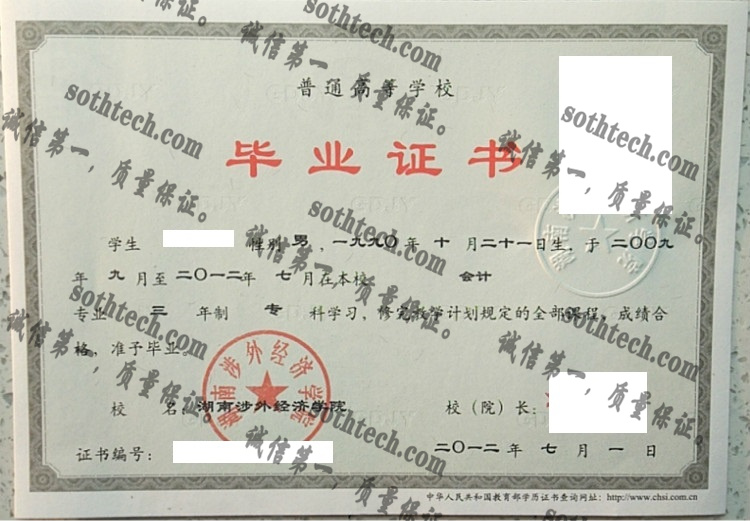 普通高等学校
毕业证书
学生 性别 男 ，一九九〇 年 十 月 二十一 日生，于 二〇〇九
年 九 月至 二〇一二 年 七 月在本校 会计
专业 三 年制 专 科学习，修完教学计划规定的全部课程，成绩合
格，准予毕业。
校 名：湖南涉外经济学院
校（院）长：
证书编号：
二〇一二 年 七 月 一 日
中华人民共和国教育部学历证书查询网址：http://www.chsi.com.cn
湖南涉外经济学院
sothtech.com
诚信第一，质量保证。
sothtech.com
诚信第一，质量保证。
sothtech.com
诚信第一，质量保证。
sothtech.com
诚信第一，质量保证。
sothtech.com
诚信第一，质量保证。
sothtech.com
诚信第一，质量保证。
sothtech.com
诚信第一，质量保证。